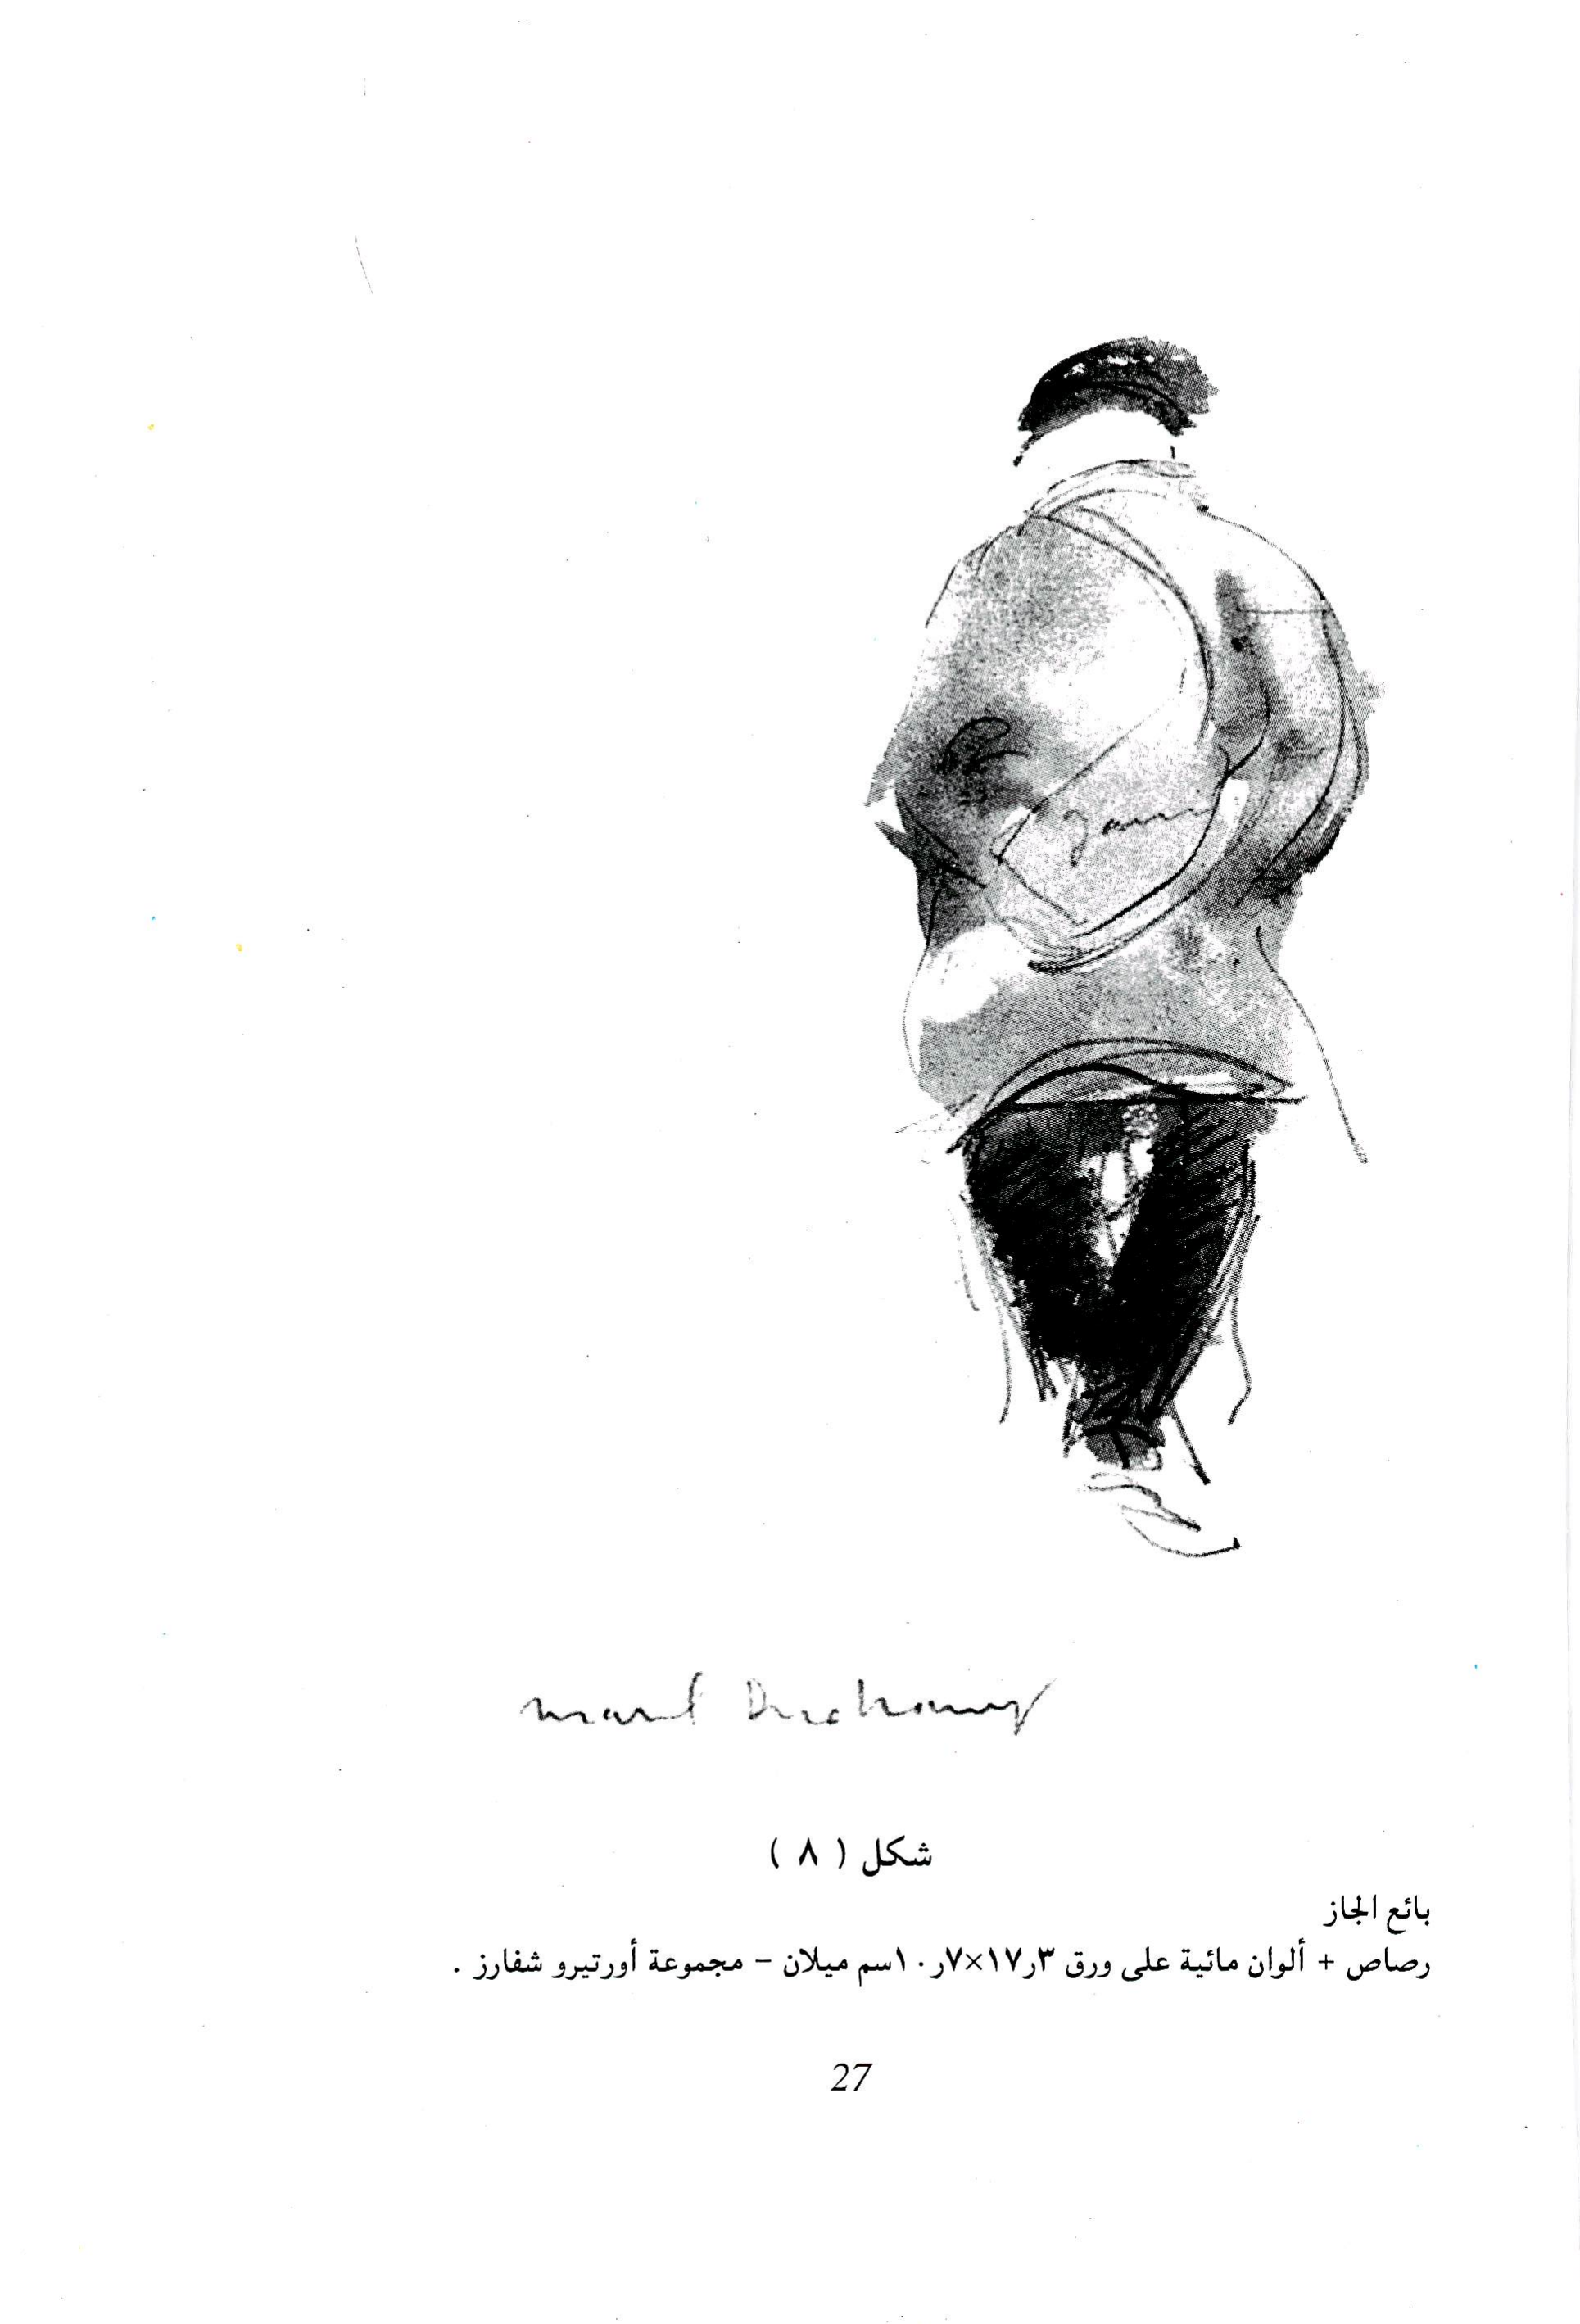 marcel Duchamp
شكل ( ٨ )
بائع الجاز
رصاص + ألوان مائية على ورق ٣ر١٧×٧ر١٠سم ميلان – مجموعة أورتيرو شفارز .
27